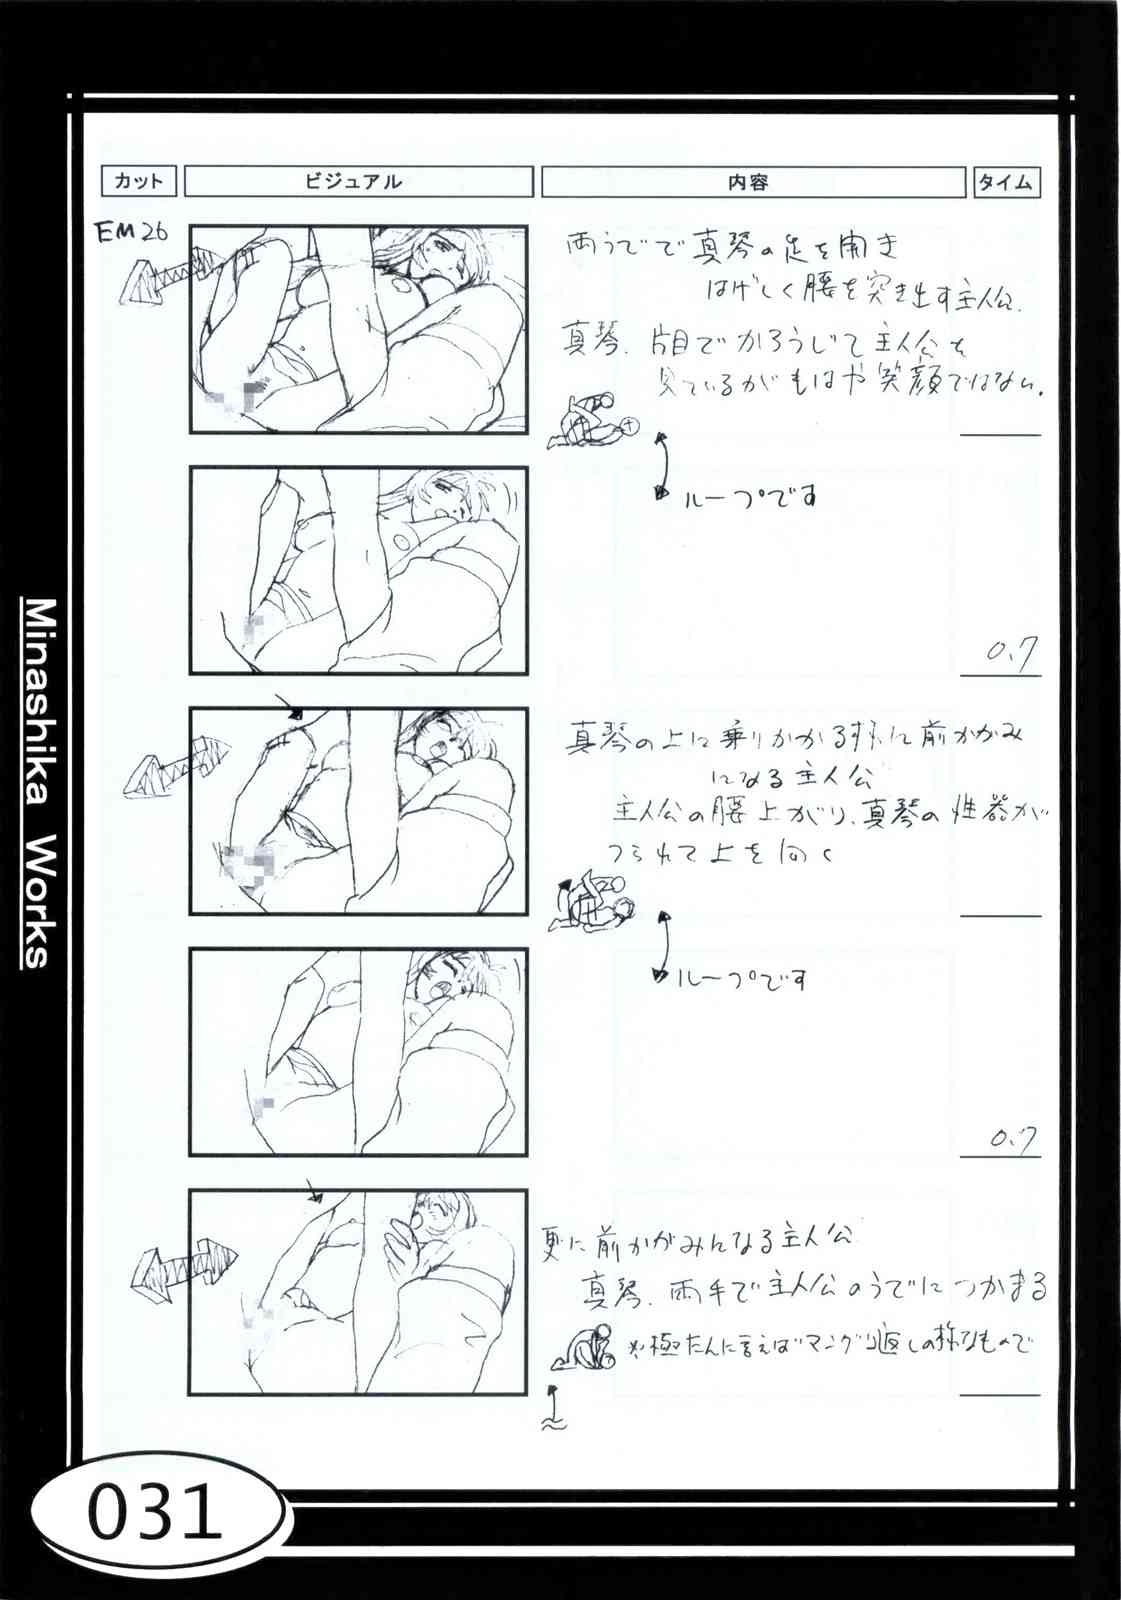 カット ビジュアル 内容 タイム
EM26
両うでで真琴の足を開き
はげしく腰を突き出す主人公.
真琴. 片目でかろうじて主人公を
見ているがもはや笑顔ではない.
ループです
0.7
真琴の上に乗りかかる様に前かがみ
になる主人公
主人公の腰上がり、真琴の性器が
つられて上を向く
ループです
0.7
更に前かがみになる主人公
真琴. 両手で主人公のうでにつかまる
※極たんに言えばマングリ返しの様なもので
Minashika Works
031